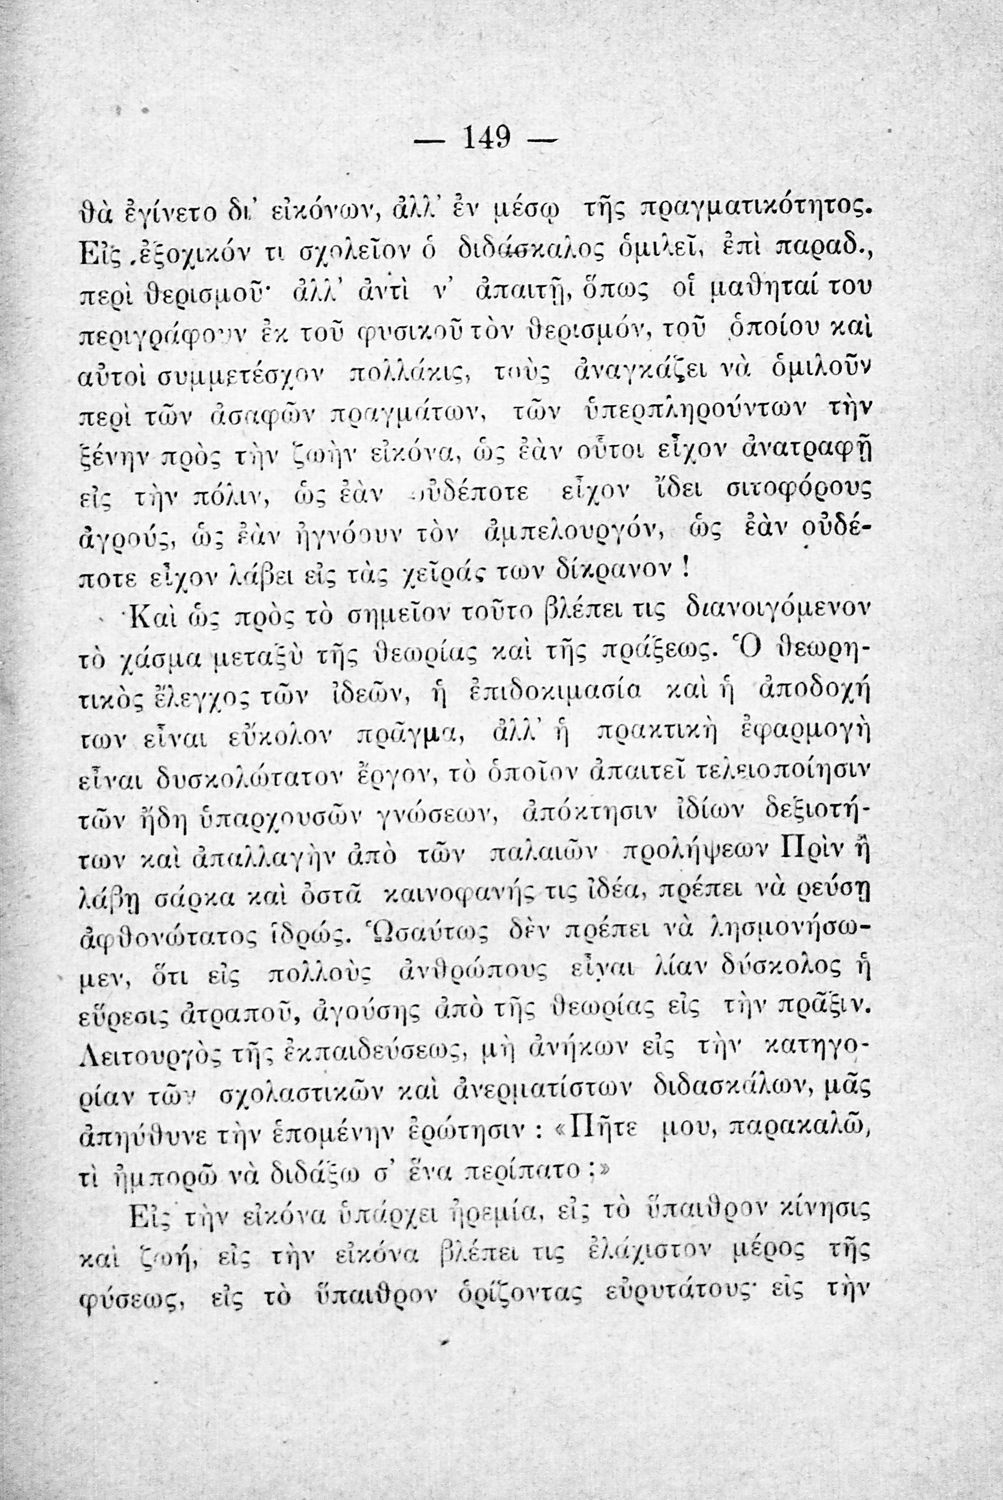 — 149 —
θὰ ἐγίνετο δι’ εἰκόνων, ἀλλ’ ἐν μέσῳ τῆς πραγματικότητος.
Εἰς ἐξοχικόν τι σχολεῖον ὁ διδάσκαλος ὁμιλεῖ, ἐπὶ παραδ.,
περὶ θερισμοῦ· ἀλλ’ ἀντὶ ν’ ἀπαιτῇ, ὅπως οἱ μαθηταί του
περιγράφουν ἐκ τοῦ φυσικοῦ τὸν θερισμόν, τοῦ ὁποίου καὶ
αὐτοὶ συμμετέσχον πολλάκις, τοὺς ἀναγκάζει νὰ ὁμιλοῦν
περὶ τῶν ἀσαφῶν πραγμάτων, τῶν ὑπερπληρούντων τὴν
ξένην πρὸς τὴν ζωὴν εἰκόνα, ὡς ἐὰν οὗτοι εἶχον ἀνατραφῇ
εἰς τὴν πόλιν, ὡς ἐὰν οὐδέποτε εἶχον ἴδει σιτοφόρους
ἀγρούς, ὡς ἐὰν ἠγνόουν τὸν ἀμπελουργόν, ὡς ἐὰν οὐδέ-
ποτε εἶχον λάβει εἰς τὰς χεῖράς των δίκρανον !
Καὶ ὡς πρὸς τὸ σημεῖον τοῦτο βλέπει τις διανοιγόμενον
τὸ χάσμα μεταξὺ τῆς θεωρίας καὶ τῆς πράξεως. Ὁ θεωρη-
τικὸς ἔλεγχος τῶν ἰδεῶν, ἡ ἐπιδοκιμασία καὶ ἡ ἀποδοχή
των εἶναι εὔκολον πρᾶγμα, ἀλλ’ ἡ πρακτικὴ ἐφαρμογὴ
εἶναι δυσκολώτατον ἔργον, τὸ ὁποῖον ἀπαιτεῖ τελειοποίησιν
τῶν ἤδη ὑπαρχουσῶν γνώσεων, ἀπόκτησιν ἰδίων δεξιοτή-
των καὶ ἀπαλλαγὴν ἀπὸ τῶν παλαιῶν προλήψεων Πρὶν ἢ
λάβῃ σάρκα καὶ ὀστᾶ καινοφανής τις ἰδέα, πρέπει νὰ ρεύσῃ
ἀφθονώτατος ἱδρώς. Ὡσαύτως δὲν πρέπει νὰ λησμονήσω-
μεν, ὅτι εἰς πολλοὺς ἀνθρώπους εἶναι λίαν δύσκολος ἡ
εὕρεσις ἀτραποῦ, ἀγούσης ἀπὸ τῆς θεωρίας εἰς τὴν πρᾶξιν.
Λειτουργὸς τῆς ἐκπαιδεύσεως, μὴ ἀνήκων εἰς τὴν κατηγο-
ρίαν τῶν σχολαστικῶν καὶ ἀνερματίστων διδασκάλων, μᾶς
ἀπηύθυνε τὴν ἑπομένην ἐρώτησιν : «Πῆτε μου, παρακαλῶ,
τὶ ἠμπορῶ νὰ διδάξω σ’ ἕνα περίπατο ;»
Εἰς τὴν εἰκόνα ὑπάρχει ἠρεμία, εἰς τὸ ὕπαιθρον κίνησις
καὶ ζωή, εἰς τὴν εἰκόνα βλέπει τις ἐλάχιστον μέρος τῆς
φύσεως, εἰς τὸ ὕπαιθρον ὁρίζοντας εὐρυτάτους· εἰς τὴν